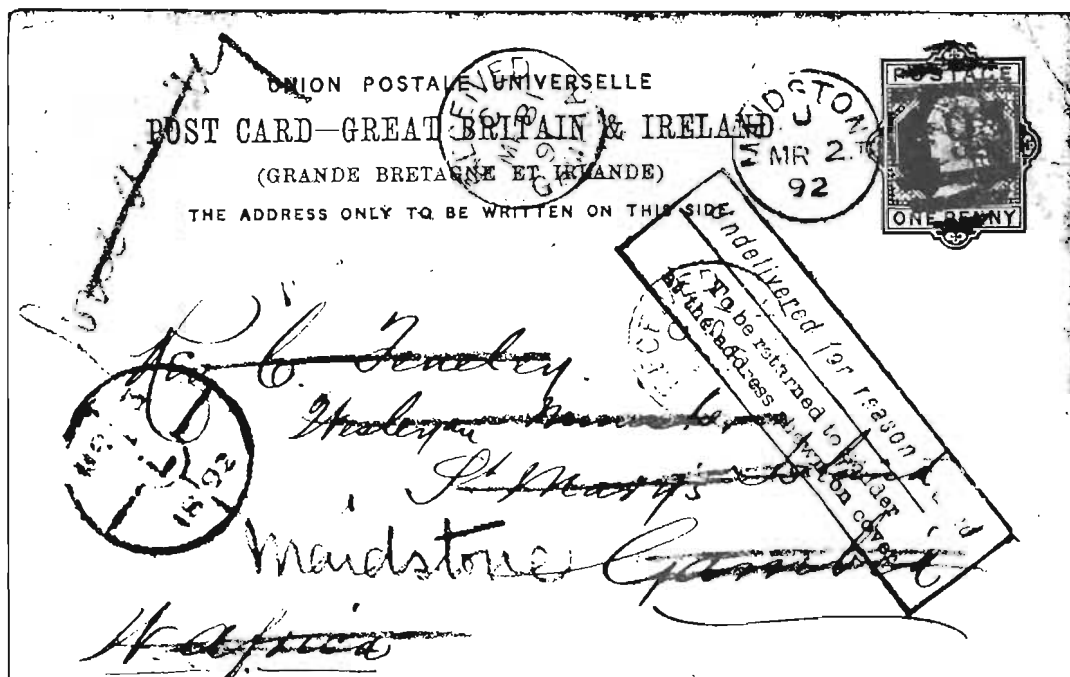 UNION POSTALE UNIVERSELLE
POST CARD—GREAT BRITAIN & IRELAND
(GRANDE BRETAGNE ET IRLANDE)
THE ADDRESS ONLY TO BE WRITTEN ON THIS SIDE
RECEIVED
MR 18
92
GAMBIA
MAIDSTONE
U
MR 2
92
POSTAGE
ONE PENNY
Undelivered for reason
To be returned to Sender
at the address shown on cover
C.
Wesleyan
St Mary's
Maidstone Gambia
W. Africa
92